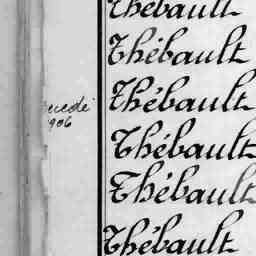 Thébault
Thébault
Thébault
Thébault
Thébault
Thébault